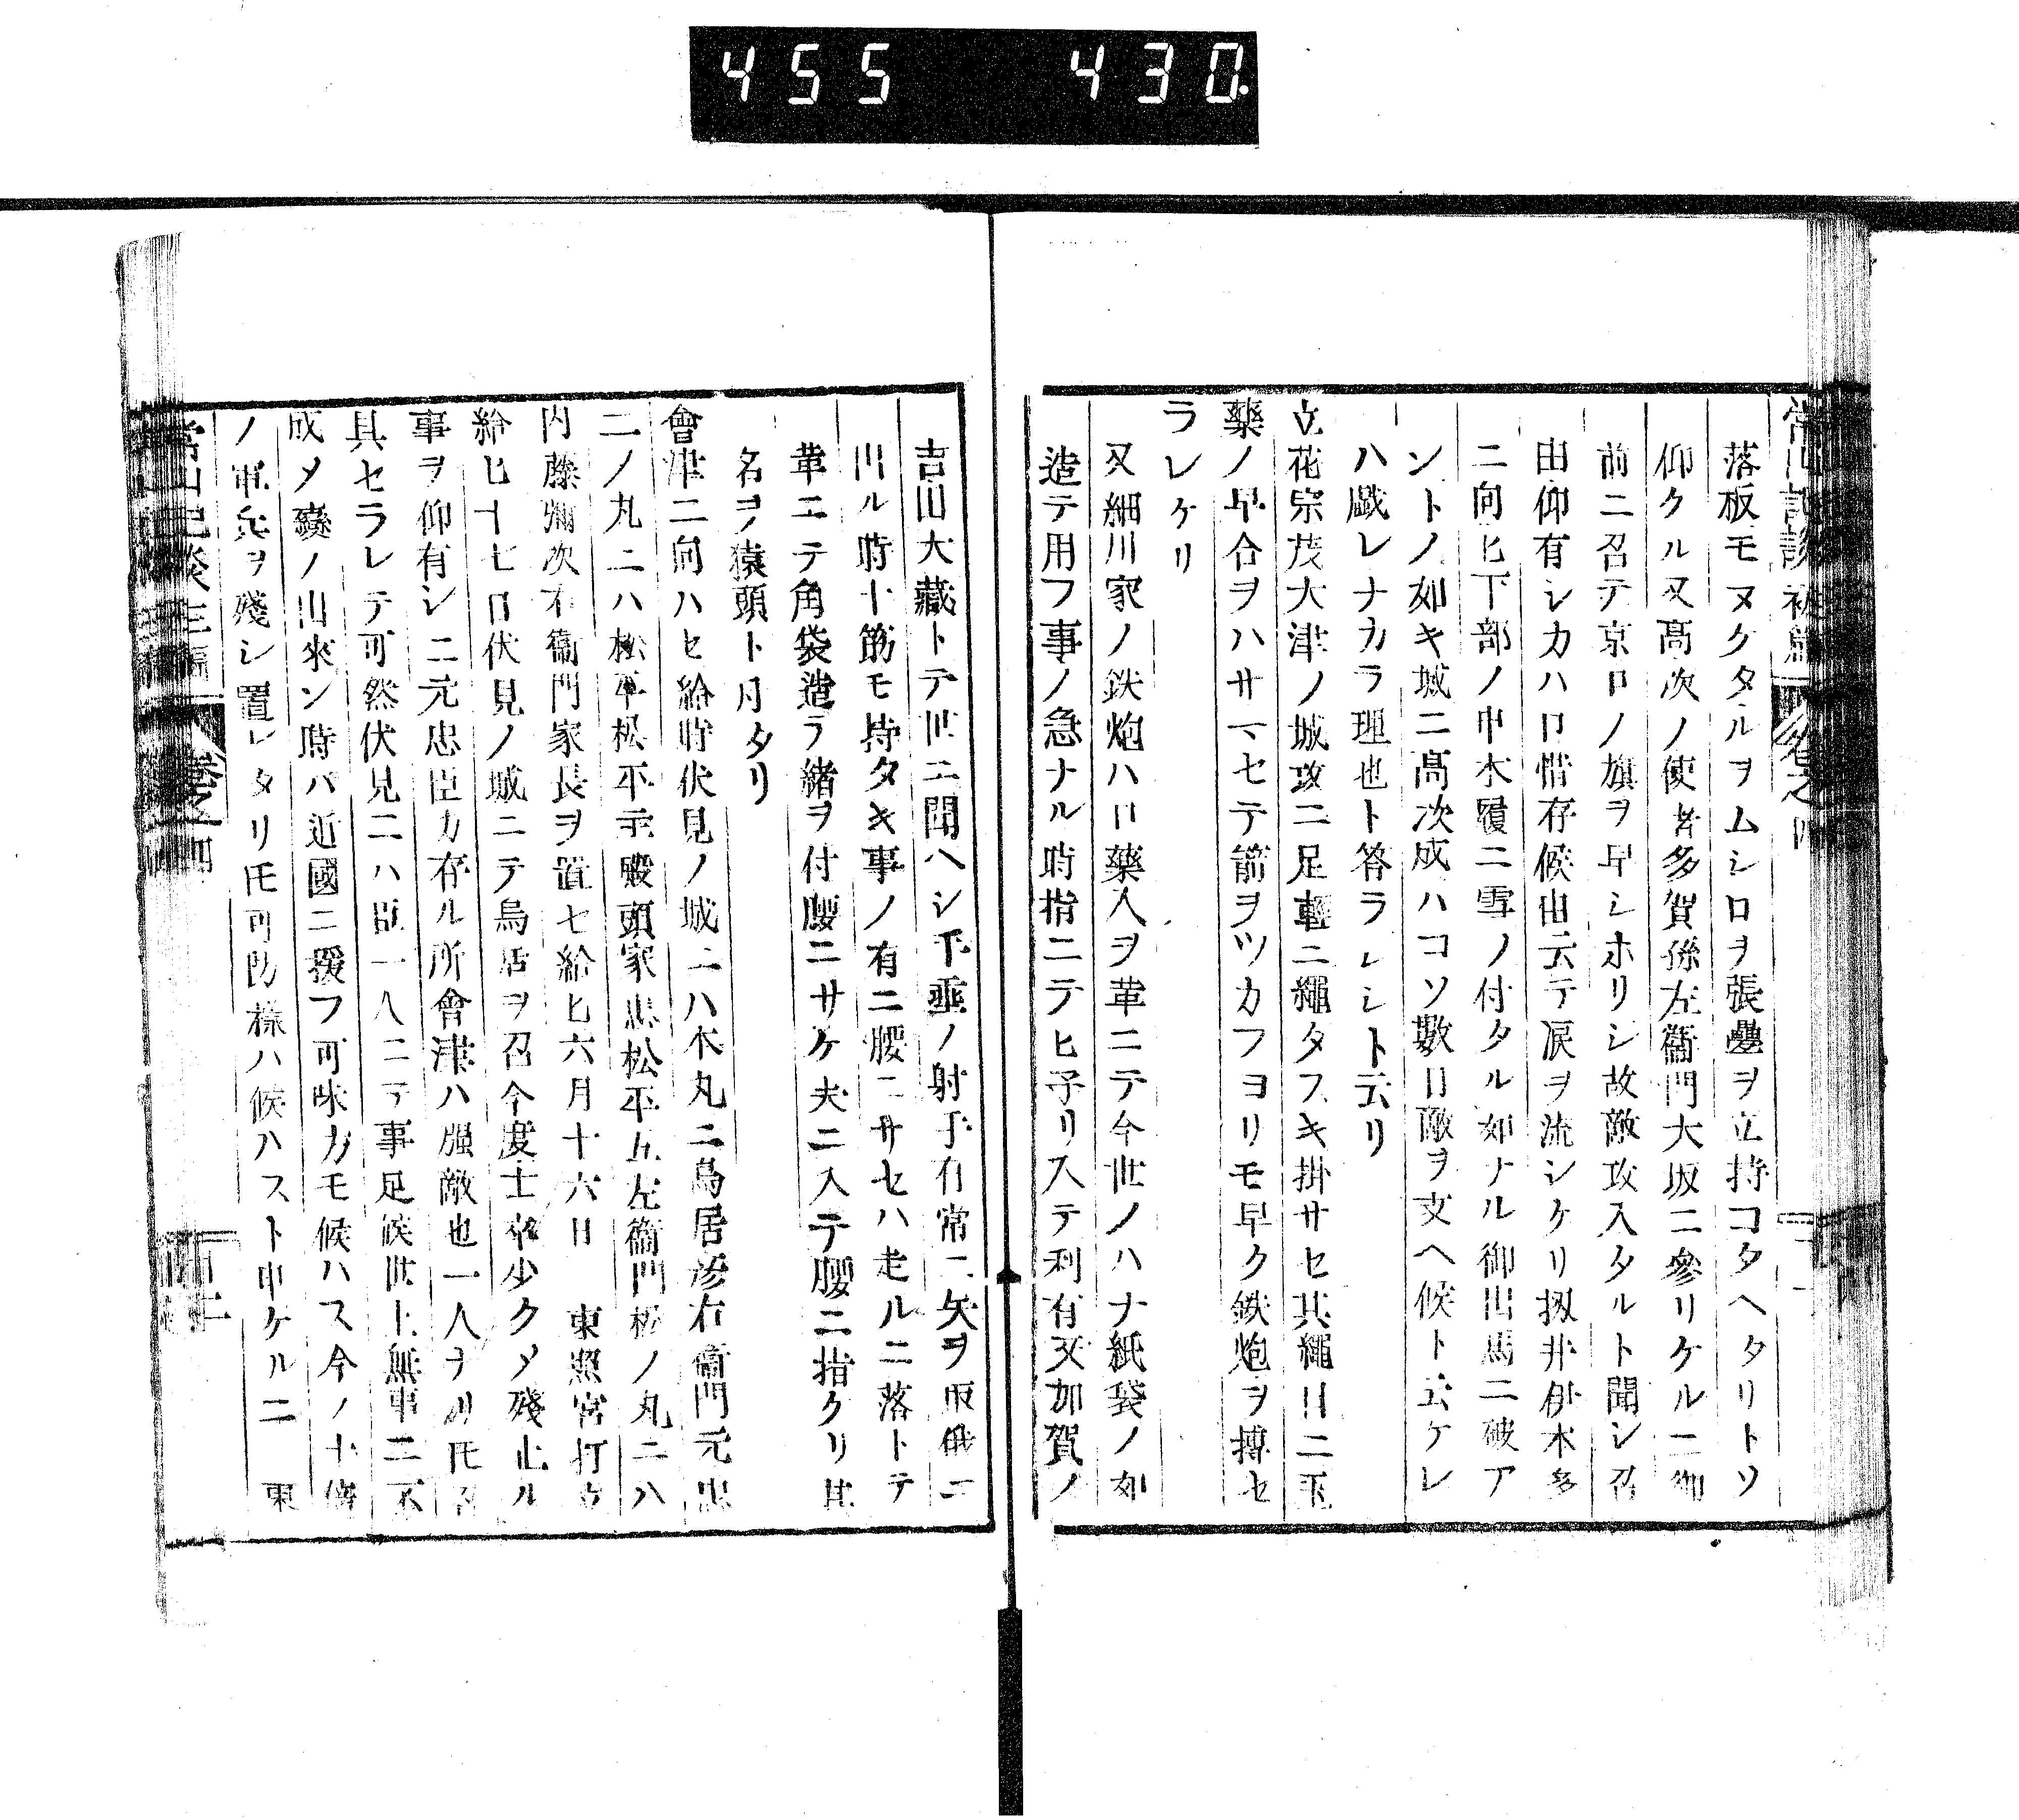 455 430
落板モヌクタルヲムシロヲ張疊ヲ立持コタヘタリトソ
仰クル又髙次ノ使者多賀孫左衞門大坂ニ參リケルニ御
前ニ召テ京口ノ旗ヲ早シホリシ故敵攻入タルト聞シ召
由仰有シカハ口惜存候由云テ涙ヲ流シケリ扨井伊木多
ニ向ヒ下部ノ中木履ニ雪ノ付タル如ナル御出馬ニ破ア
ントノ如キ城ニ髙次成ハコソ數日敵ヲ支ヘ候ト云ケレ
ハ戯レナカラ理也ト答ラレシト云リ
立花宗茂大津ノ城攻ニ足輕ニ繩タスキ掛サセ其繩目ニ玉
藥ノ早合ヲハサマセテ箭ヲツカフヨリモ早ク鉄炮ヲ摶セ
ラレケリ
又細川家ノ鉄炮ハ口藥入ヲ革ニテ今世ノハナ紙袋ノ如
造テ用フ事ノ急ナル時指ニテヒ子リ入テ利有又加賀ノ
吉田大藏トテ世ニ聞ヘシ手垂ノ射手有常ニ矢ヲ取俄ニ
出ル時十筋モ持タキ事ノ有ニ腰ニサセハ走ルニ落トテ
革ニテ角袋造ラ緒ヲ付腰ニサケ夫ニ入テ腰ニ指クリ其
名ヲノ猿頭ト月タリ
會津ニ向ハセ給時伏見ノ城ニハ木丸ニ鳥居彦右衞門元忠
二ノ丸ニハ松平松平主殿頭家忠松平五左衞門松ノ丸ニハ
内藤彌次右衞門家長ヲ置セ給ヒ六月十六日 東照宮打立
給ヒ十七日伏見ノ城ニテ鳥居ヲ召今度士卒少クメ殘止ル
事ヲ仰有シニ元忠臣カ存ル所會津ハ强敵也一人ヲリ圧召
具セラレテ可然伏見ニハ臣一人ニテ事足候世上無事ニ不
成メ變ノ出來ン時バ近國ニ援フ可味カモ候ハス今ノ十倍
ノ軍兵ヲ殘シ置レタリ圧可防樣ハ候ハスト申ケルニ 東